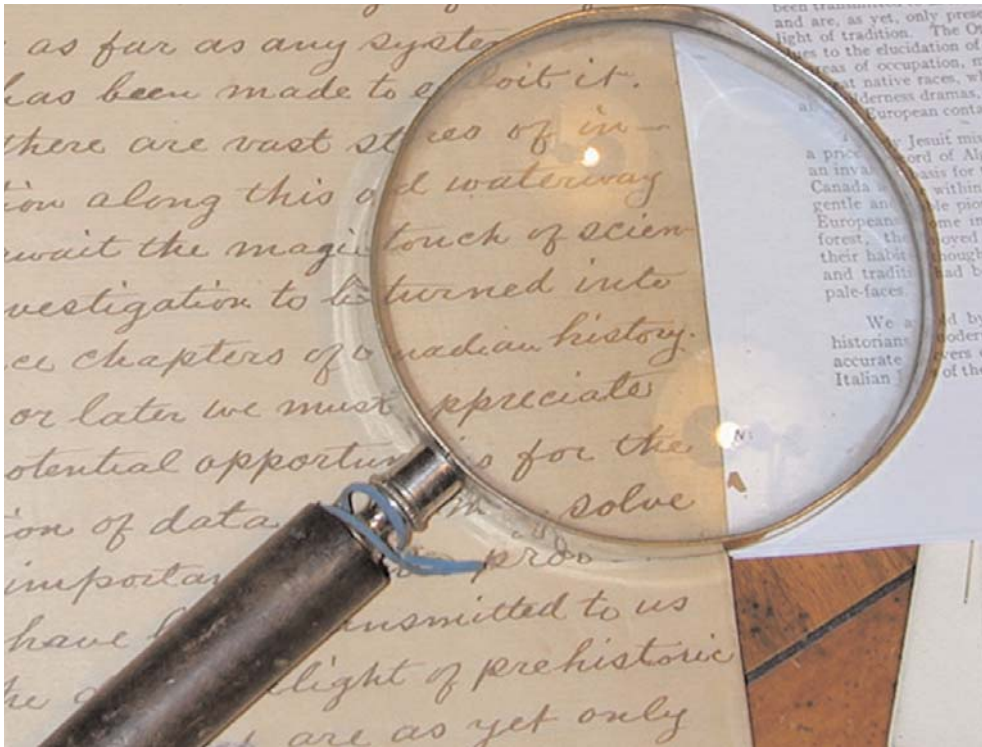 as far as any syste
has been made to e loit it.
there are vast st res of in-
ion along this o d waterway
await the magi touch of scien-
vestigation to be turned into
ce chapters of nadian history.
or later we must ppreciate
otential opportun s for the
ion of data solve
importan prob-
have ansmitted to us
light of prehistoric
are as yet only
been transmitted
and are, as yet, only prese
light of tradition. The O
ues to the elucidation of
reas of occupation, m
at native races, wh
ilderness dramas,
European conta
Jesuit mis
a price ord of Alg
an inva asis for
Canada within
gentle an le pio
Europeans ome in
forest, the oyed
their habit hough
and traditi had b
pale-faces.
We a d by
historians moder
accurate vers o
Italian of the
N: